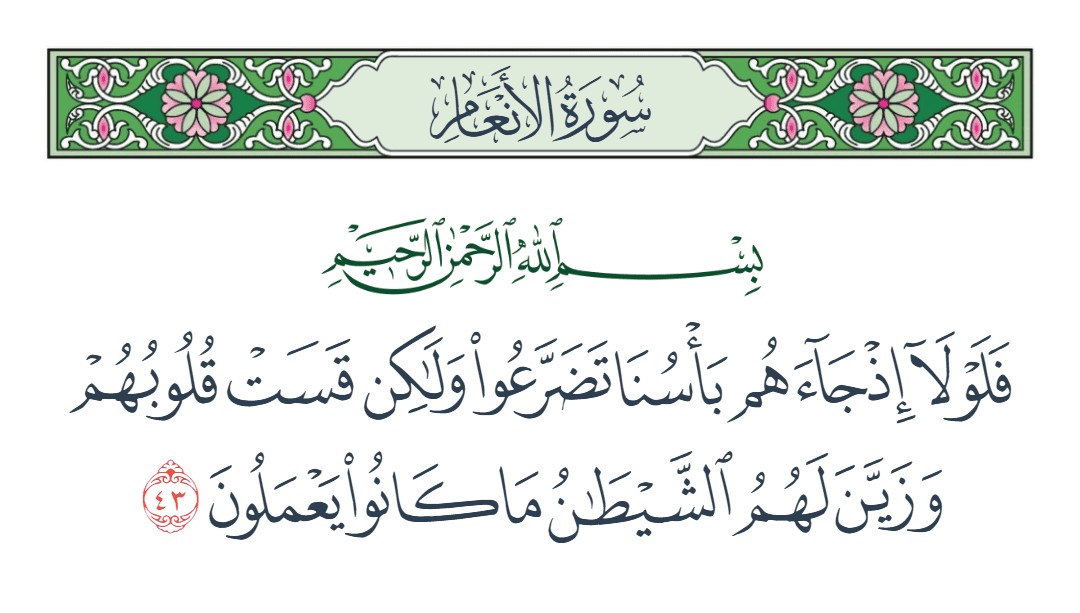 سُورَةُ الأَنْعَامِ
بِسْمِ ٱللَّهِ ٱلرَّحْمَٰنِ ٱلرَّحِيمِ
فَلَوْلَآ إِذْ جَآءَهُم بَأْسُنَا تَضَرَّعُوا۟ وَلَٰكِن قَسَتْ قُلُوبُهُمْ
وَزَيَّنَ لَهُمُ ٱلشَّيْطَٰنُ مَا كَانُوا۟ يَعْمَلُونَ ٤٣